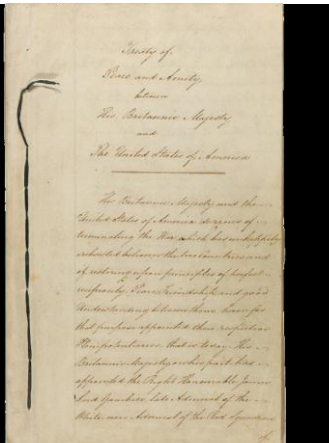 Treaty of
Peace and Amity
between
His Britannic Majesty
and
The United States of America
His Britannic Majesty and the
United States of America desirous of
terminating the War which has unhappily
subsisted between the two Countries and
of restoring upon principles of perfect
reciprocity, Peace, Friendship and good
Understanding between them, have for
that purpose appointed their respective
Plenipotentiaries, that is to say, His
Britannic Majesty on his part has
appointed the Right Honorable James
Lord Gambier, late Admiral of the
White now Admiral of the Red Squadron
of